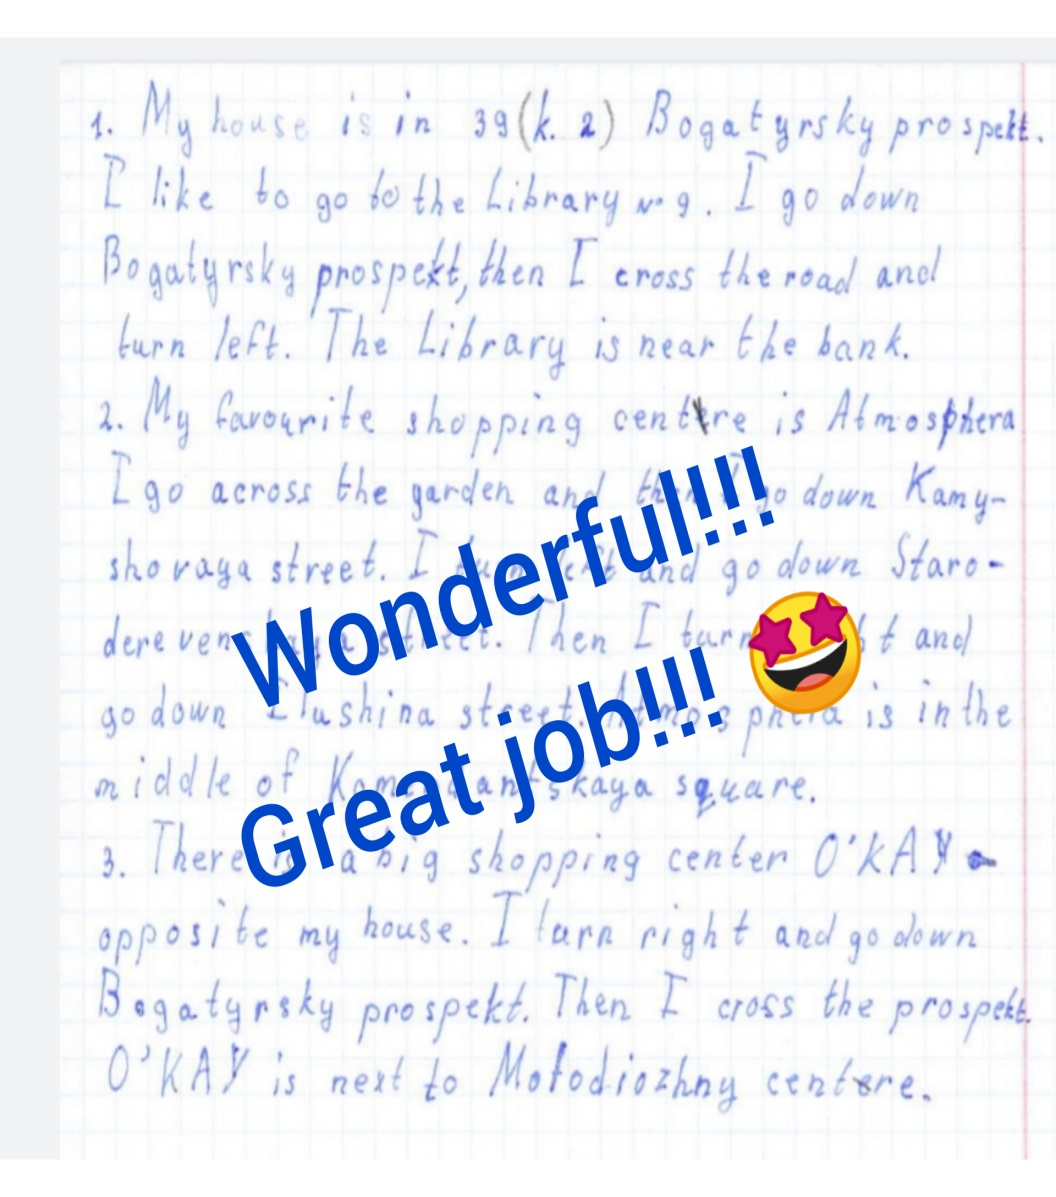 1. My house is in 39 (k. 2) Bogatyrsky prospekt.
I like to go to the Library № 9. I go down
Bogatyrsky prospekt, then I cross the road and
turn left. The Library is near the bank.
2. My favourite shopping centre is Atmosphera
I go across the garden and then I go down Kamy-
shovaya street. I turn left and go down Staro-
derevenskaya street. Then I turn right and
go down Ilushina street. Atmosphera is in the
middle of Komendantskaya square.
3. There is a big shopping center O'KAY
opposite my house. I turn right and go down
Bogatyrsky prospekt. Then I cross the prospekt.
O'KAY is next to Molodiozhny centre.
Wonderful!!!
Great job!!!